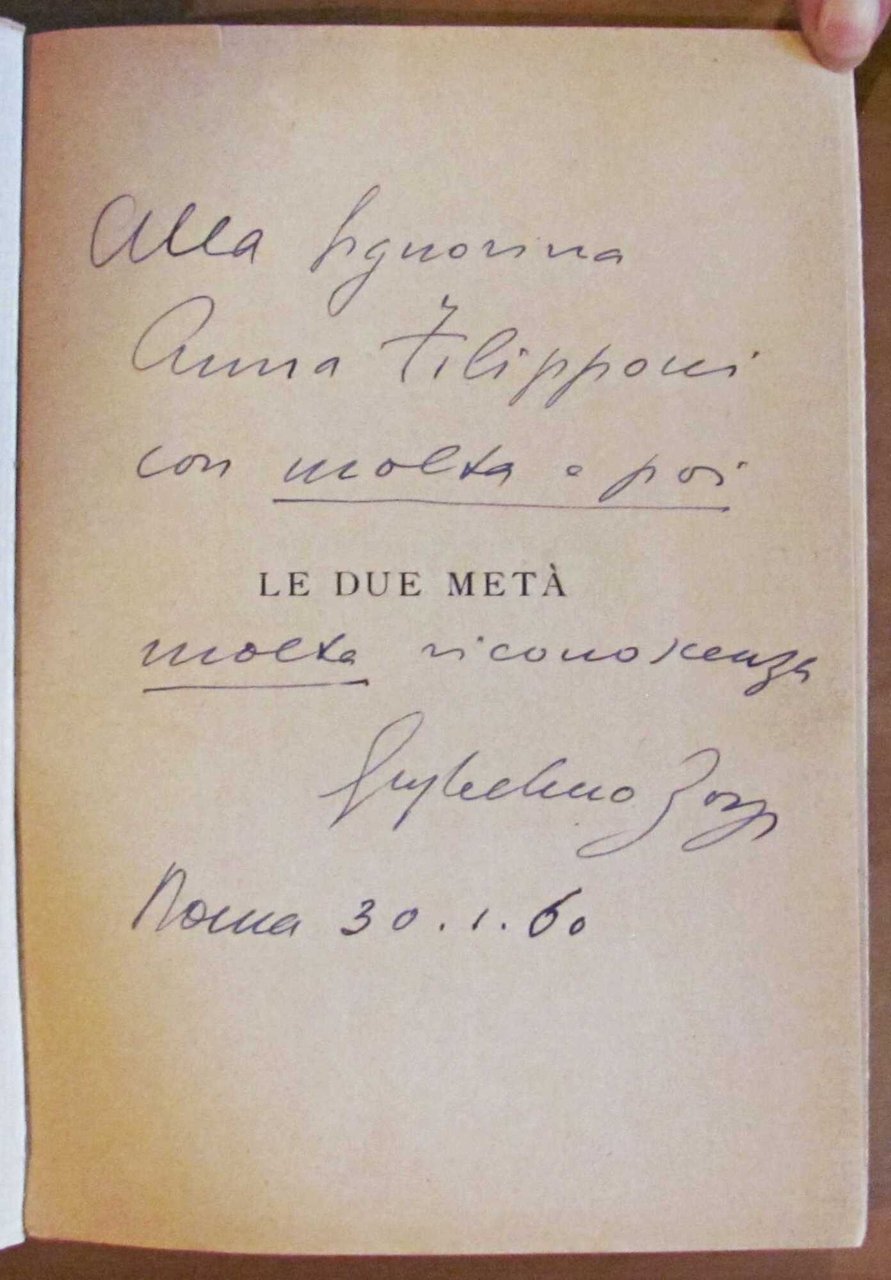 Alla Signorina
Anna Filipponi
con molta e poi
LE DUE METÀ
molta riconoscenza
Guglielmo Zorzi
Roma 30.1.60